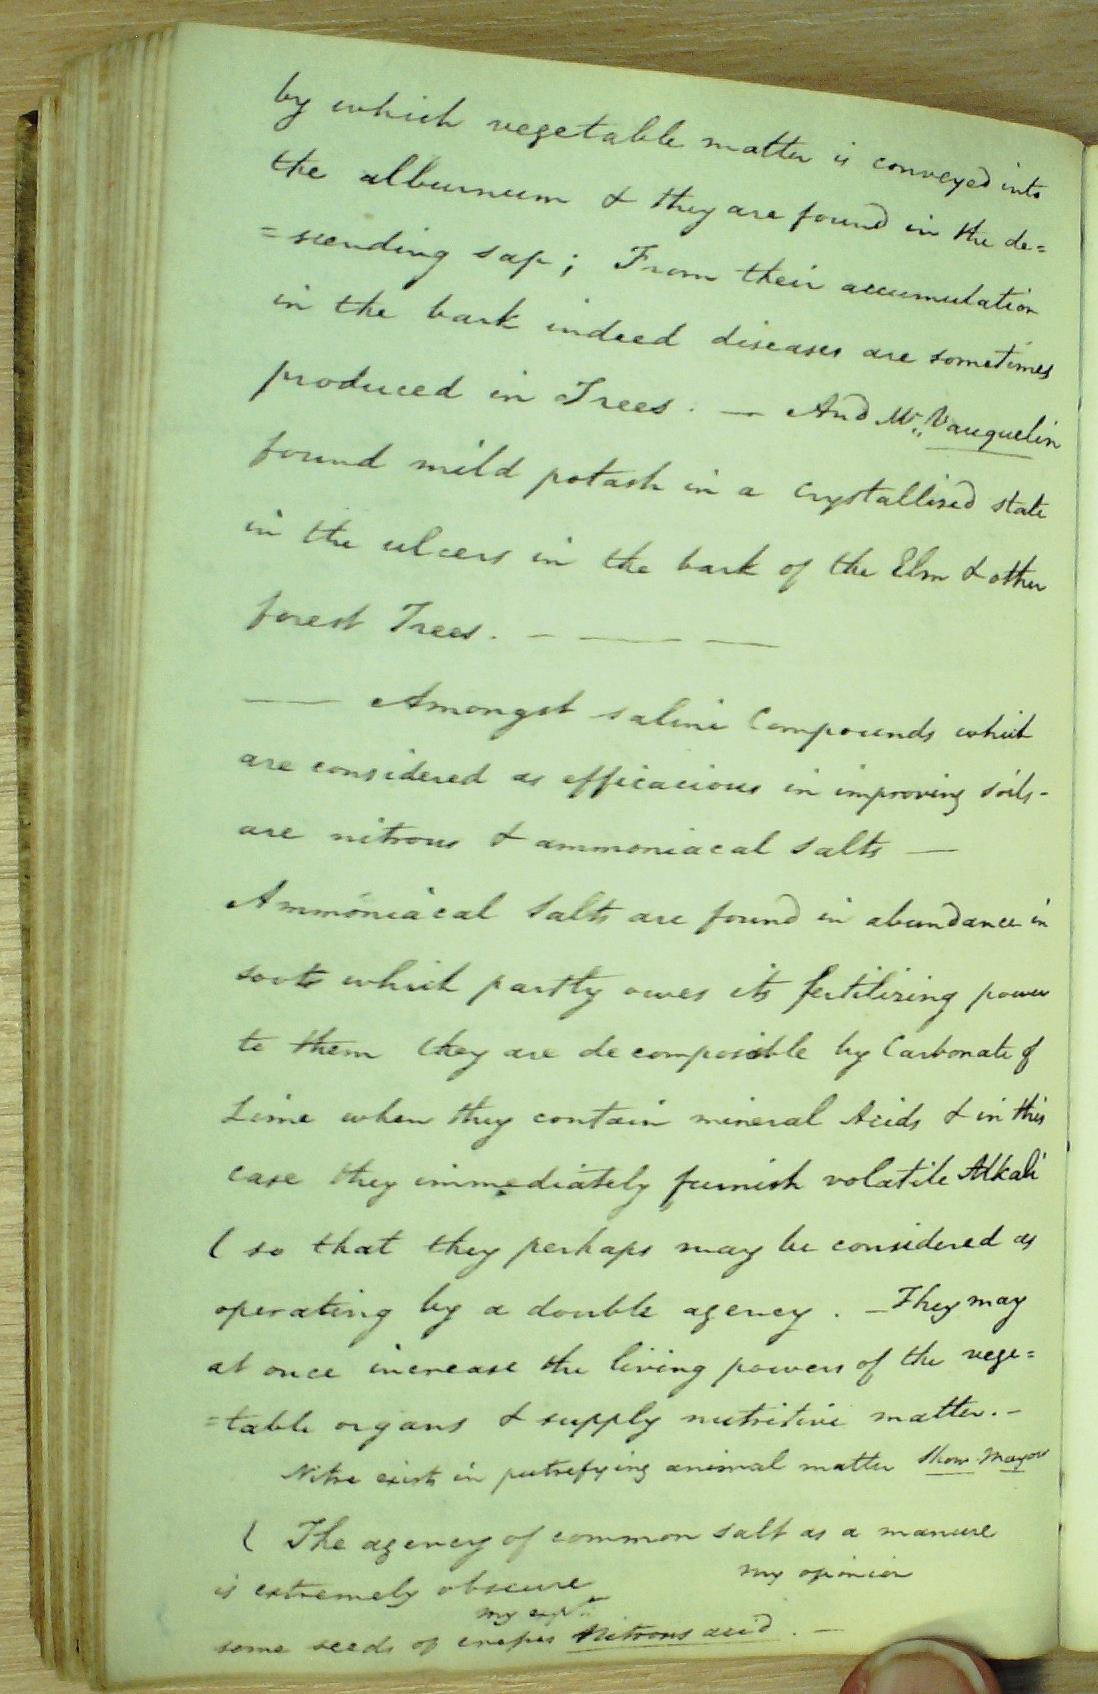 by which vegetable matter is conveyed into
the alburnum & they are found in the de=
=scending sap; From their accumulation
in the bark indeed diseases are sometimes
produced in Trees. — And Mr. Vauquelin
found mild potash in a crystallised state
in the ulcers in the bark of the Elm & other
forest Trees. — — —
— Amongst saline Compounds which
are considered as efficacious in improving soils -
are nitrous & ammoniacal salts —
Ammoniacal salts are found in abundance in
soots which partly owes its fertilizing power
to them they are decomposible by Carbonate of
Lime when they contain mineral Acids & in this
case they immediately furnish volatile Alkali
( so that they perhaps may be considered as
operating by a double agency. — They may
at once increase the living powers of the vege=
=table organs & supply nutritive matter. -
Nitre exists in putrefying animal matter Show Mayow
( The agency of common salt as a manure
is extremely obscure my opinion
my expts
some seeds of Nitrous acid. —